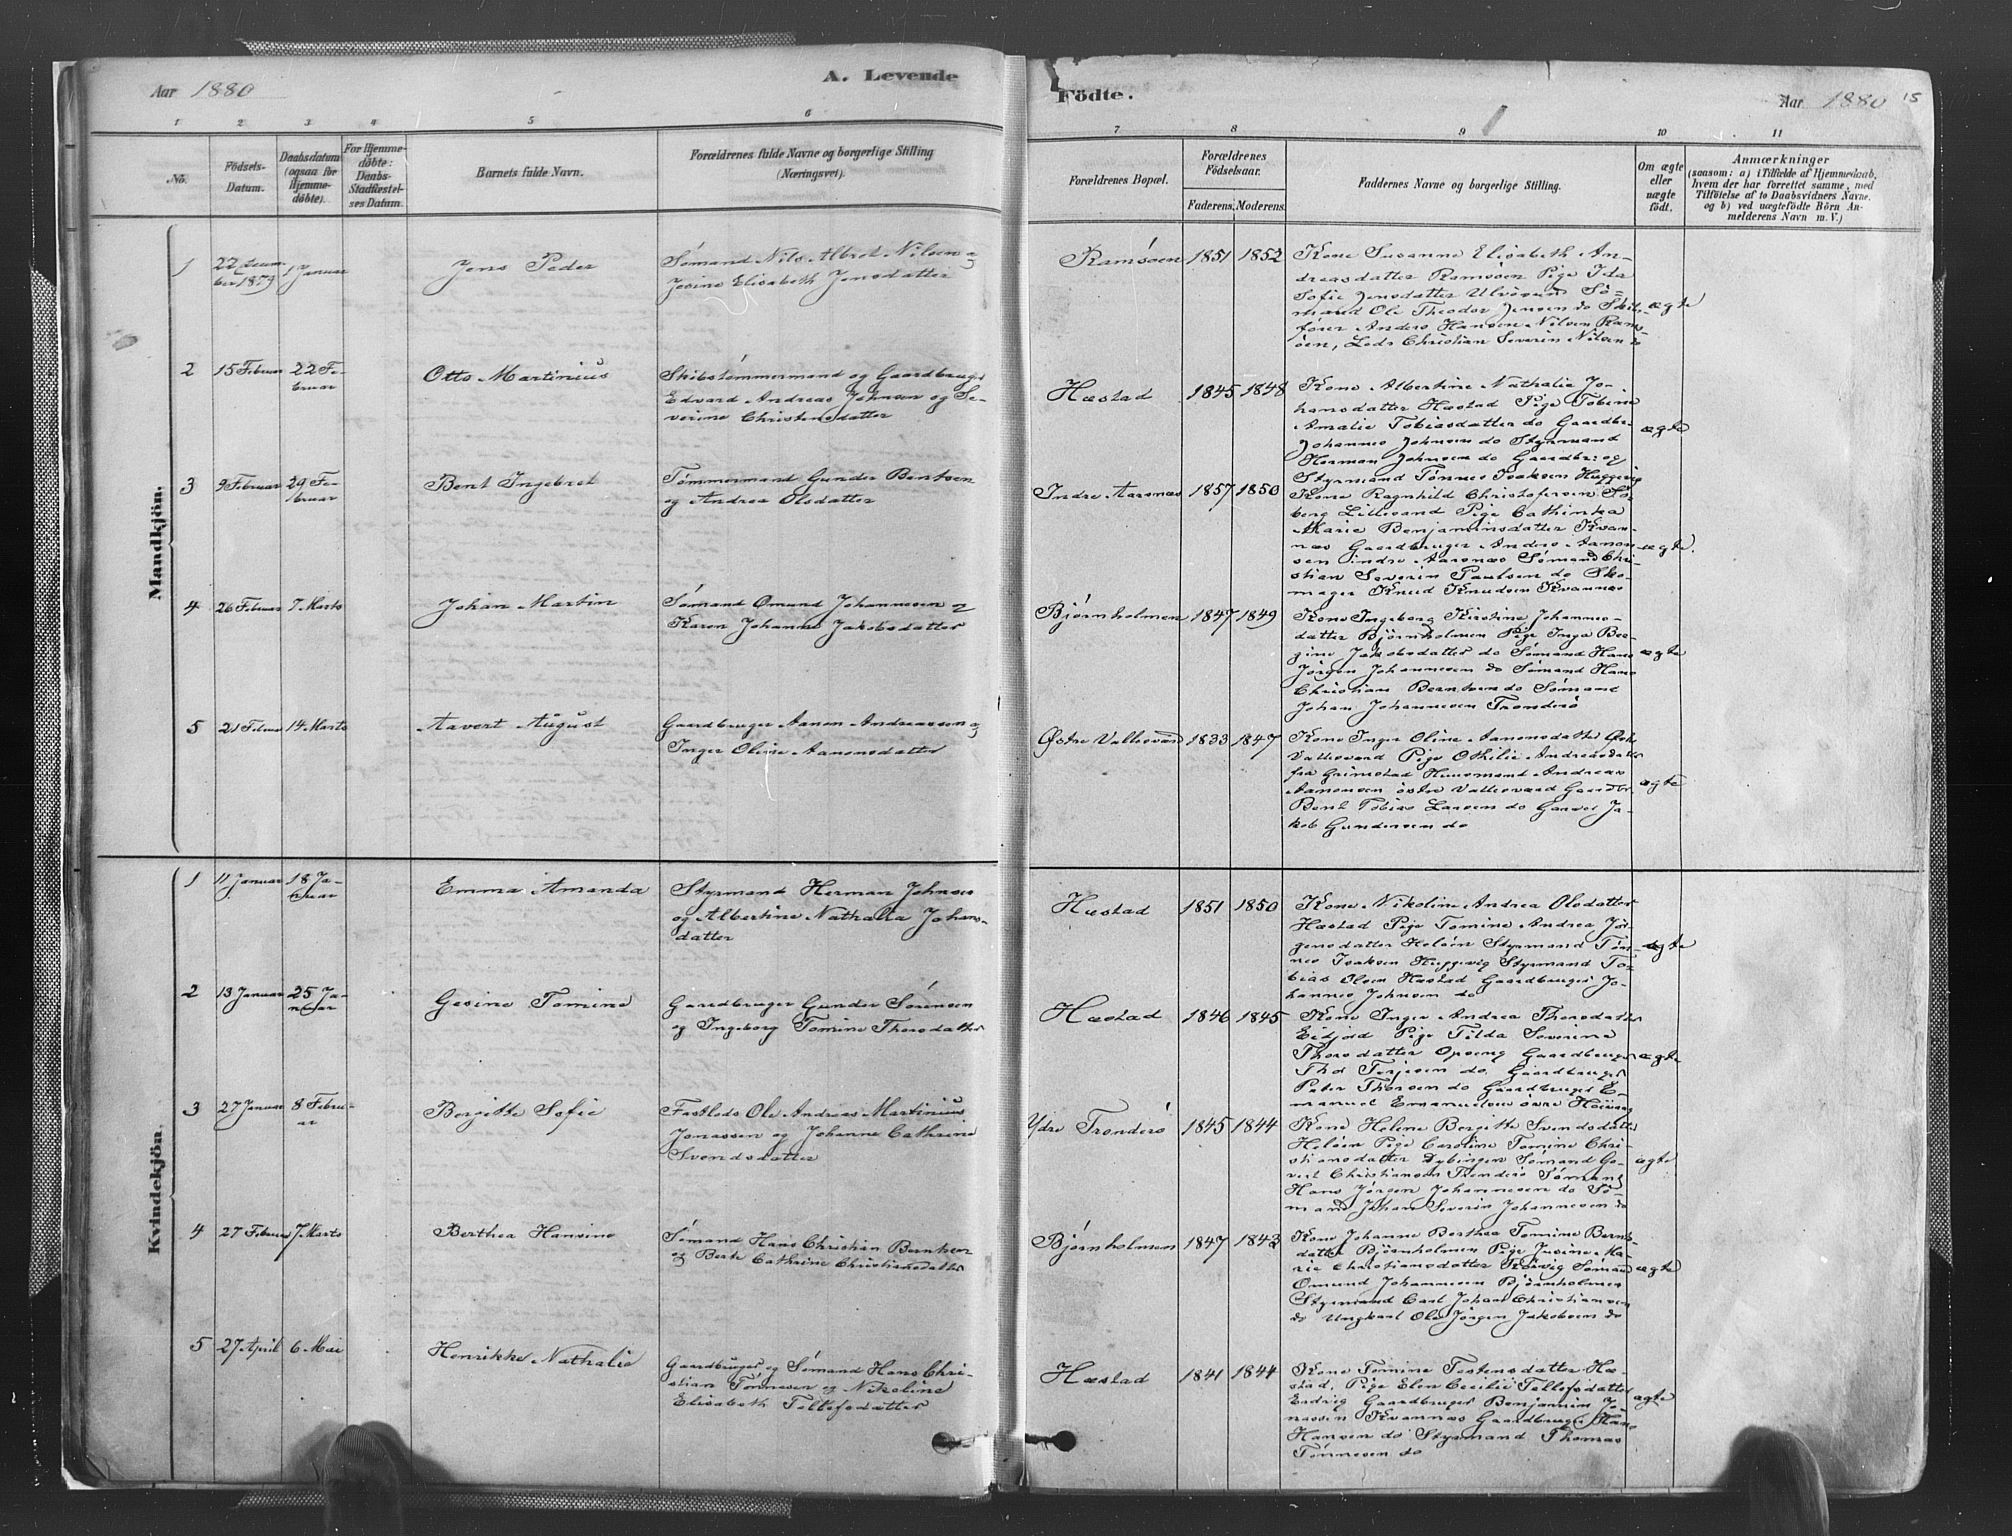 Aar 1880
A. Levende
Födte.
Aar 1880
15
1 2 3 4 5 6
7 8 9 10 11
No.
Födsels-
Datum.
Daabsdatum
(ogsaa for
Hjemme-
döbte).
For Hjemme-
döbte:
Daabs-
Stadfæstel-
ses Datum.
Barnets fulde Navn.
Forældrenes fulde Navne og borgerlige Stilling
(Næringsvei).
Forældrenes Bopæl.
Forældrenes
Födselsaar.
Faderens. Moderens.
Faddernes Navne og borgerlige Stilling.
Om ægte
eller
uægte
födt.
Anmærkninger
(saasom: a) i Tilfælde af Hjemmedaab,
hvem der har forrettet samme, med
Tilföielse af to Daabsvidners Navne.
og b) ved uægtefödte Börn An-
melderens Navn m. V.)
Mandkjön.
1
22 Decem-
ber 1879
1 Januar
Jens Peder
Sømand Nils Albret Nilsen og
Josine Elisabeth Jensdatter
Ramsöen 1851 1852
Kone Susanne Elisabeth An-
dreasdatter Ramsöen Pige Ida
Sofie Jensdatter Ulvösund Sö-
mand Ole Theodor Jensen do Skibs-
fører Anders Hansen Nilsen Rams-
öen, Lods Christian Severin Nilsen do
ægte
2
15 Februar
22 Fe-
bruar
Otto Martinius
Skibstömmermand og Gaardbruger
Edvard Andreas Johnsen og Se-
verine Christensdatter
Hæstad 1845 1848
Kone Albertine Nathalie Jo-
hansdatter Hæstad Pige Tobine
Amalie Tobiasdatter do Gaardbr.
Johannes Johnsen do Styrmand
Herman Johnsen do Gaardbr. og
Styrmand Tønnes Isaksen Heggevig
ægte
3
9 Februar
29 Fe-
bruar
Bent Ingebret
Tømmermand Gunder Bentsen
og Andrea Olsdatter
Indre Aarsnæs 1857 1850
Kone Ragnhild Christofersen Sö-
berg Lillesand Pige Cathinka
Marie Benjaminsdatter Kvan-
næs Gaardbruger Anders Aanon-
sen indre Aarsnæs Sømand Chri-
stian Severin Paulsen do Sko-
mager Knud Knudsen Kvannæs
ægte.
4
26 Februar
7 Marts
Johan Martin
Sømand Omund Johannesen og
Karen Johanne Jakobsdatter
Bjørnholmen 1847 1849
Kone Ingeborg Kirstine Johannes-
datter Bjørnholmen Pige Inga Ber-
gine Jakobsdatter do Sømand Hans
Jörgen Johannesen do Sømand Hans
Christian Berntsen do Sømand
Johan Johannesen Trønderö
ægte
5
21 Februar
14 Marts
Aavert August
Gaardbruger Aanon Andreassen og
Inger Oline Aanonsdatter
Østre Vallesværd 1833 1847
Kone Inger Oline Aanonsdatter Østr.
Vallesværd Pige Othilie Andreasdatter
fra Grimstad Huusmand Andreas
Aanonsen östre Vallesværd Gaardbr.
Bent Tobias Larsen do Garver Ja-
kob Gundersen do
ægte
Kvindekjön.
1
11 Januar
18 Ja-
nuar
Emma Amanda
Styrmand Herman Johnsen
og Albertine Nathalia Johans-
datter
Hæstad 1851 1850
Kone Nikoline Andrea Olsdatter
Hæstad Pige Tomine Andrea Jör-
gensdatter Helöen Styrmand Tøn-
nes Isaksen Heggevig Styrmand To-
bias Olsen Hæstad Gaardbruger Jo-
hannes Johnsen do
ægte
2
13 Januar
25 Ja-
nuar
Gesine Tomine
Gaardbruger Gunder Sörensen
og Ingeborg Tomine Thorsdatter
Hæstad 1846 1845
Kone Inger Andrea Thorsdatter
Eidjord Pige Tilda Severine
Thorsdatter Opseng Gaardbruger
Thor Terjesen do Gaardbruger
Peter Thorsen do Gaardbruger E-
manuel Emanuelsen övre
ægte
3
27 Januar
8 Febru-
ar
Bergitte Sofie
Fastlods Ole Andreas Martinius
Jonassen og Johanne Cathrine
Svendsdatter
Ydre Trønderö 1845 1844
Kone Helene Bergitte Svendsdatter
Helöen Pige Caroline Tomine Chri-
stiansdatter Dybingen Sømand Go-
vert Christiansen Trønderö Sømand
Hans Jørgen Johannesen do Sö-
mand Johan Severin Johannesen do
ægte
4
27 Februar
7 Marts
Berthea Hansine
Sømand Hans Christian Berntsen
og Berte Cathrine Christiansdatter
Bjørnholmen 1847 1843
Kone Johanne Berthea Tomine Bernts-
datter Bjørnholmen Pige Josine Ma-
rie Christiansdatter Sømand
Omund Johannesen Bjørnholmen
Styrmand Carl Johan Christiansen
do Ungkarl Ole Jörgen Jakobsen do
ægte
5
27 April
6 Mai
Henrikke Nathalie
Gaardbruger og Sømand Hans Chri-
stian Tønnesen og Nikoline
Elisabeth Tellefsdatter
Hæstad 1841 1844
Kone Tomine Tostensdatter Hæ-
stad, Pige Elen Cecilie Tellefsdatter
Eidvig Gaardbruger Benjamin Jo-
nassen Kvannæs Gaardbruger Hans
Hansen do Styrmand Thomas
Tønnesen do
ægte